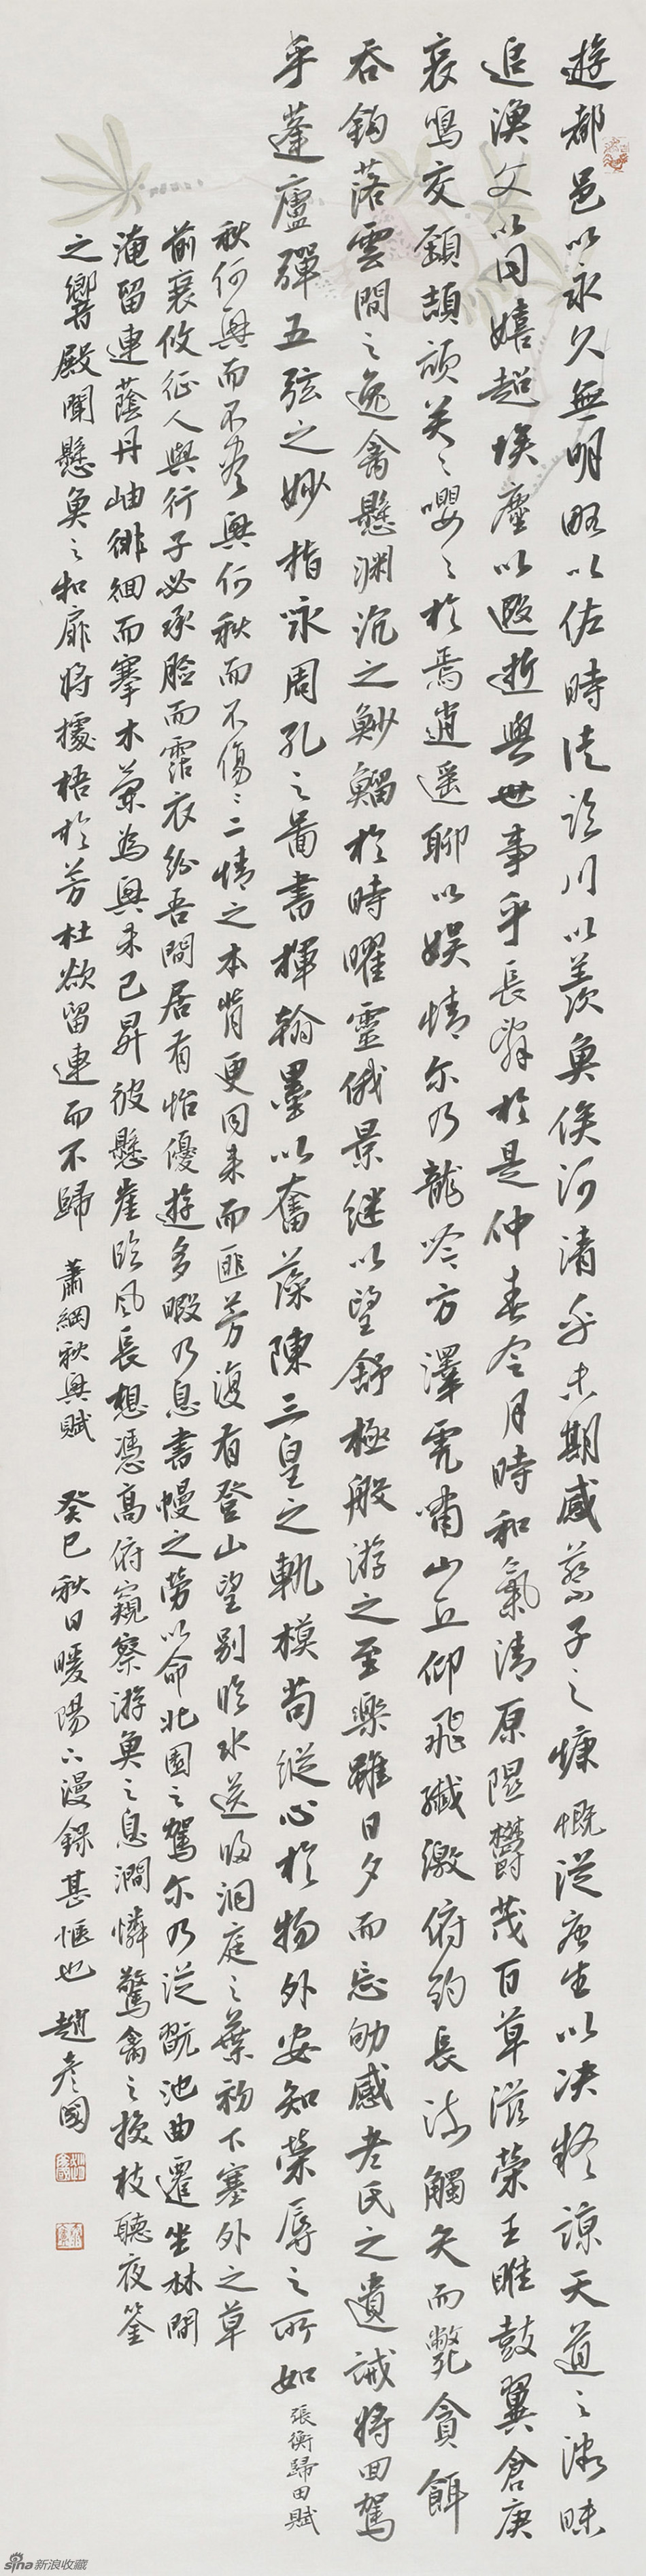 遊都邑以永久無明略以佐時徒臨川以羨魚俟河清乎未期感蔡子之慷慨從唐生以决疑諒天道之微昧
追漁父以同嬉超埃塵以遐逝與世事乎長辭於是仲春令月時和氣清原隰鬱茂百草滋榮王雎鼓翼倉庚
哀鳴交頸頡頏关々嚶々於焉逍遥聊以娱情尔乃龍吟方澤虎嘯山丘仰飛纖繳俯釣長流觸矢而斃貪餌
吞鈎落雲間之逸禽懸渊沉之魦鰡於時曜靈俄景继以望舒極般游之至樂雖日夕而忘劬感老氏之遺誡将回駕
乎蓬廬彈五弦之妙指咏周孔之圖書揮翰墨以奮藻陳三皇之軌模苟縱心於物外安知榮辱之所如 張衡歸田賦
秋何興而不盡興何秋而不傷々二情之本背更同来而匪芳復有登山望别臨水送归洞庭之葉初下塞外之草
前衰攸征人與行子必承臉而霑衣紛吾閒居有怡優遊多暇乃息書幔之勞以命北園之駕尔乃從翫池曲遷坐林間
淹留連蔭丹岫徘徊而搴木蘭為興未已昇彼懸崖臨風長想憑高俯窺察游魚之息澗憐驚禽之換枝聽夜筌
之響殿聞懸魚之扣扉将據梧於芳杜欲留連而不歸 蕭綱秋興賦 癸巳秋日暖陽下漫録甚惬也 趙彦國
sina新浪收藏